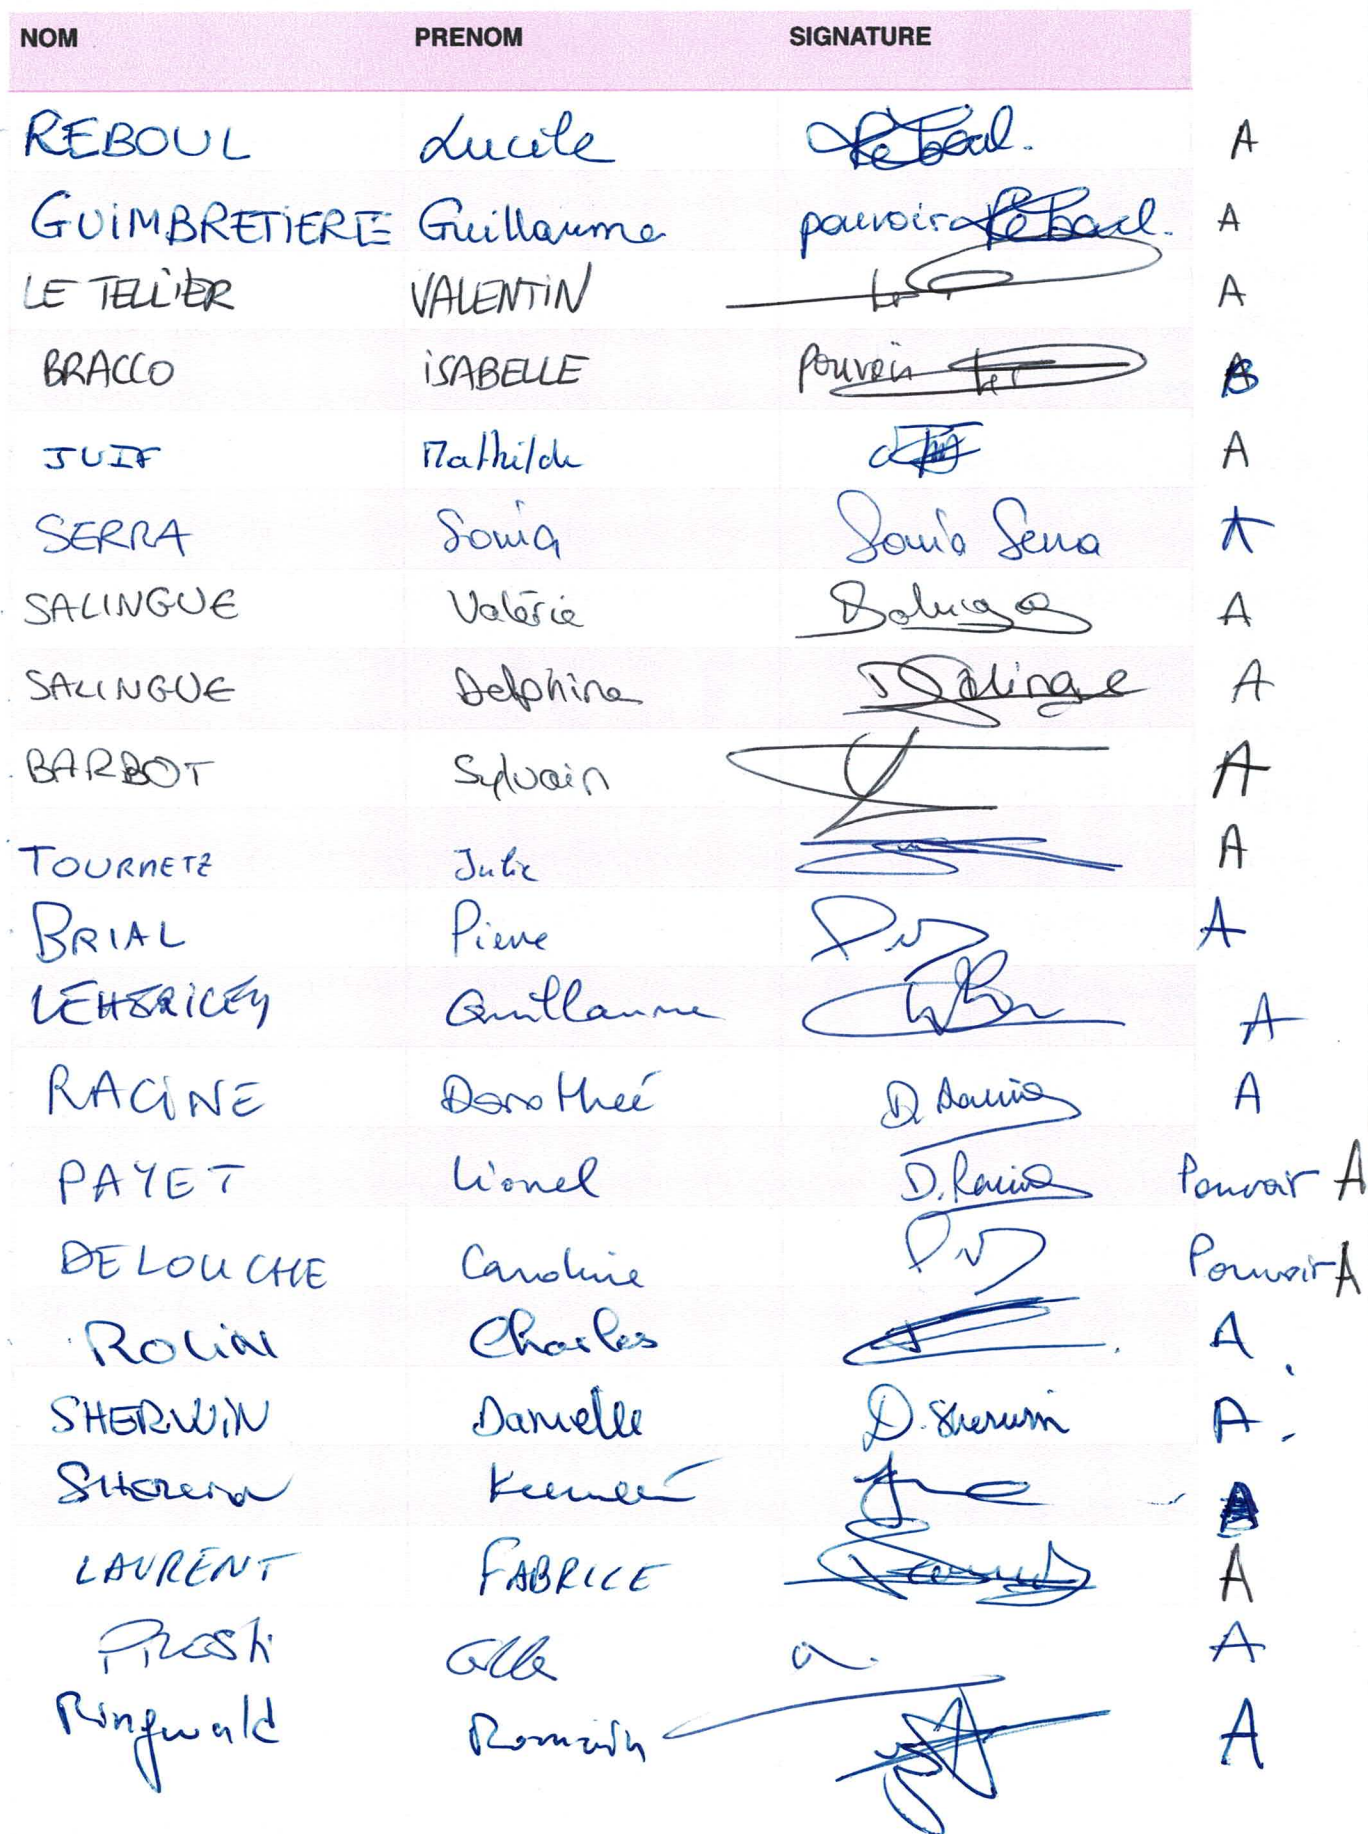 NOM PRENOM SIGNATURE
REBOUL Lucile Reboul. A
GUIMBRETIERE Guillaume pouvoir Reboul. A
LE TELLIER VALENTIN A
BRACCO ISABELLE Pouvoir
JUIF Mathilde A
SERRA Sonia Sonia Serra A
SALINGUE Valérie Salingue A
SALINGUE Delphine DSalingue A
BARBOT Sylvain A
TOURNETZ Julie A
BRIAL Pierre A
LEHERICEY Guillaume A
RACINE Dorothée D. Racine A
PAYET Lionel D. Racine Pouvoir A
DELOUCHE Caroline Pouvoir A
ROLIN Charles A
SHERWIN Danielle D. Sherwin A
SHERWIN A
LAURENT FABRICE A
A
Ringwald Romain A